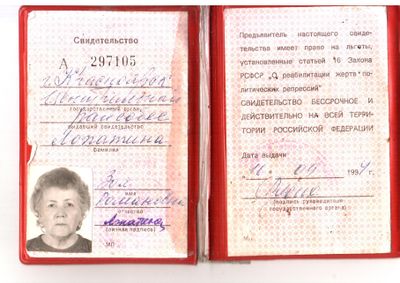 Свидетельство
А 297105
г. Красноярск
Центральный
государственный орган,
райсобес
выдавший свидетельство
Лопатина
фамилия
Зоя
имя
отчество
(личная подпись)
МП
Предъявитель настоящего свиде-
тельства имеет право на льготы,
установленные статьей 16 Закона
РСФСР „О реабилитации жертв по-
литических репрессий"
СВИДЕТЕЛЬСТВО БЕССРОЧНОЕ И
ДЕЙСТВИТЕЛЬНО НА ВСЕЙ ТЕРРИ-
ТОРИИ РОССИЙСКОЙ ФЕДЕРАЦИИ
Дата выдачи
199 г.
(подпись руководителя
государственного органа)
МП